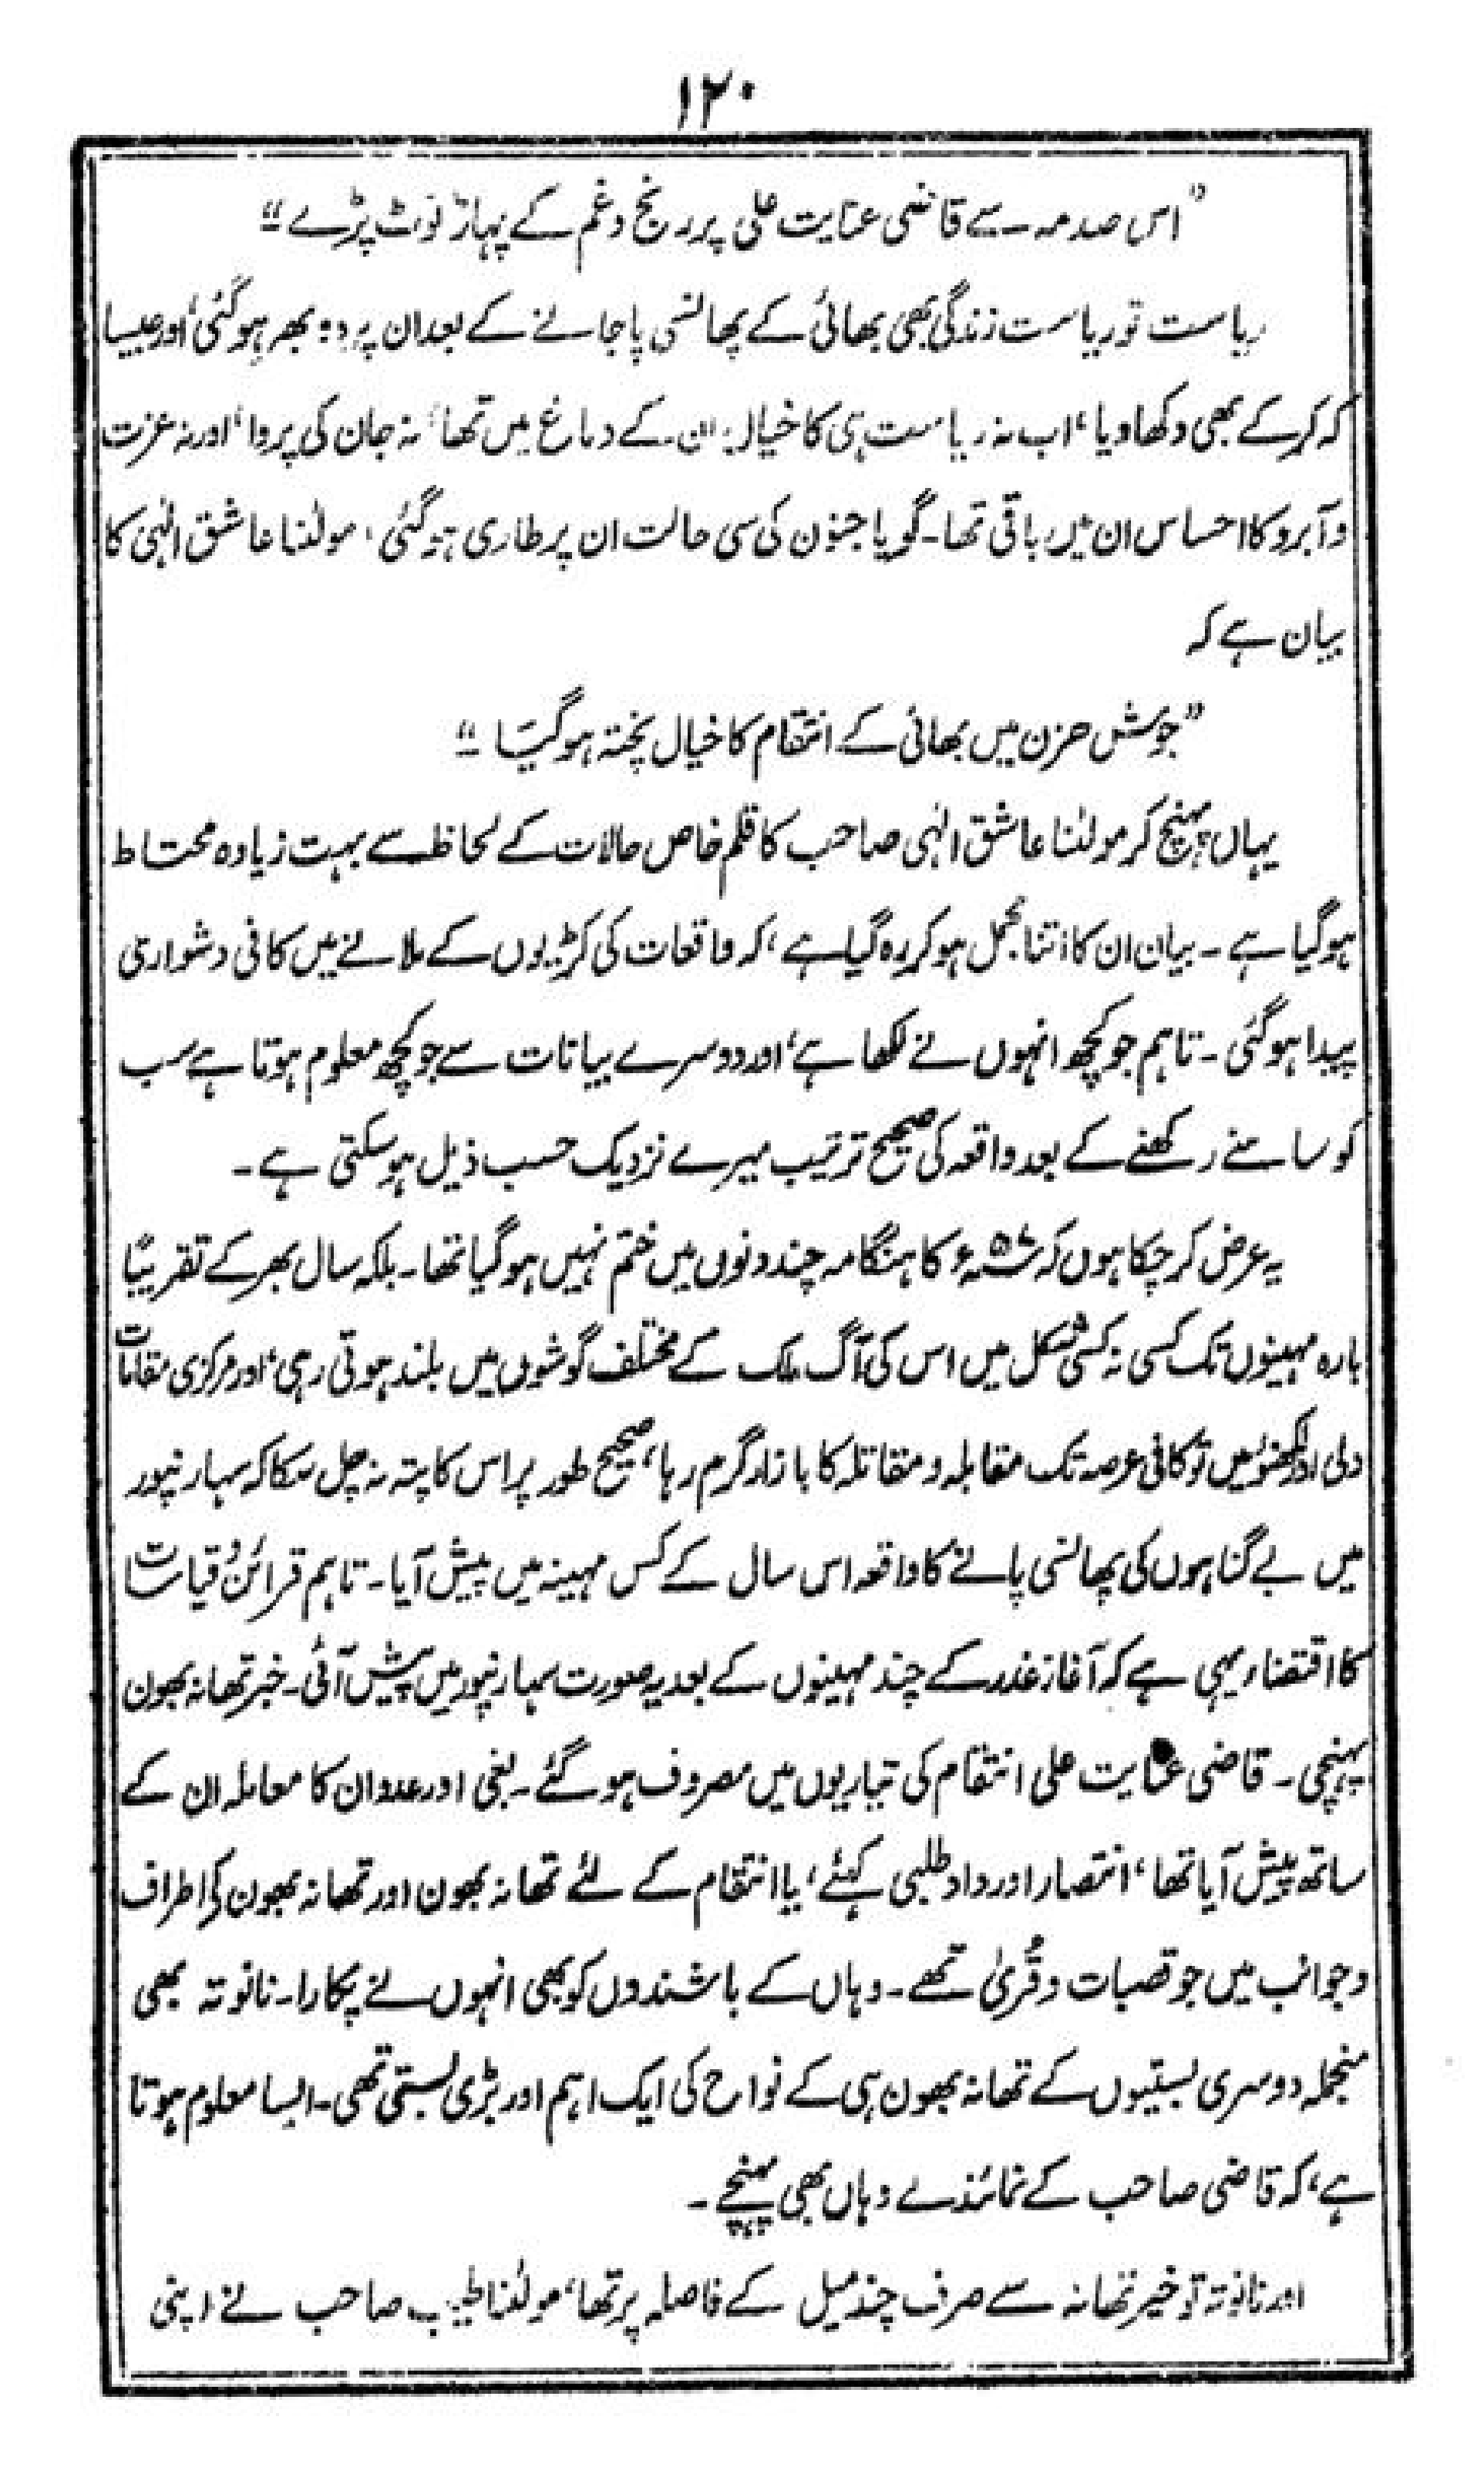 ۱۲۰
”اس صدمہ سے قاضی عنایت علی پر رنج و غم کے پہاڑ ٹوٹ پڑے“
ریاست تو ریاست زندگی بھی بھائی کے پھانسی پا جانے کے بعد ان پر دو بھر ہوگئی، اور جیسا
کہ کر کے بھی دکھا دیا، اب نہ ریاست ہی کا خیال ان کے دماغ میں تھا، نہ جان کی پروا، اور نہ عزت
و آبرو کا احساس ان میں باقی تھا۔ گویا جنون کی سی حالت ان پر طاری ہوگئی، مولٰنا عاشق الٰہی کا
بیان ہے کہ
”جوش حزن میں بھائی کے انتقام کا خیال پختہ ہوگیا“
یہاں پہنچ کر مولٰنا عاشق الٰہی صاحب کا قلم خاص حالات کے لحاظ سے بہت زیادہ محتاط
ہوگیا ہے۔ بیان ان کا اتنا مجمل ہو کر رہ گیا ہے، کہ واقعات کی کڑیوں کے ملانے میں کافی دشواری
پیدا ہوگئی۔ تاہم جو کچھ انہوں نے لکھا ہے، اور دوسرے بیانات سے جو کچھ معلوم ہوتا ہے سب
کو سامنے رکھنے کے بعد واقعہ کی صحیح ترتیب میرے نزدیک حسب ذیل ہو سکتی ہے۔
یہ عرض کر چکا ہوں کہ ۵۷ء کا ہنگامہ چند دنوں میں ختم نہیں ہوگیا تھا۔ بلکہ سال بھر کے تقریبًا
بارہ مہینوں تک کسی نہ کسی شکل میں اس کی آگ ملک کے مختلف گوشوں میں بلند ہوتی رہی، اور مرکزی مقامات
دلی اور لکھنؤ میں تو کافی عرصہ تک مقابلہ و مقاتلہ کا بازار گرم رہا، صحیح طور پر اس کا پتہ نہ چل سکا کہ سہارنپور
میں بے گناہوں کی پھانسی پانے کا واقعہ اس سال کے کس مہینہ میں پیش آیا۔ تاہم قرائن و قیاسات
کا اقتضاء یہی ہے کہ آغاز غدر کے چند مہینوں کے بعد یہ صورت سہارنپور میں پیش آئی۔ خبر تھانہ بھون
پہنچی۔ قاضی عنایت علی انتقام کی تیاریوں میں مصروف ہوگئے۔ بغی اور عدوان کا معاملہ ان کے
ساتھ پیش آیا تھا، انتصار اور داد طلبی کہئے، یا انتقام کے لئے تھانہ بھون اور تھانہ بھون کے اطراف
و جوانب میں جو قصبات و قُریٰ تھے۔ وہاں کے باشندوں کو بھی انہوں نے پکارا۔ نانوتہ بھی
منجملہ دوسری بستیوں کے تھانہ بھون ہی کے نواح کی ایک اہم اور بڑی بستی تھی۔ ایسا معلوم ہوتا
ہے، کہ قاضی صاحب کے نمائندے وہاں بھی پہنچے۔
اور نانوتہ تو خیر تھانہ سے صرف چند میل کے فاصلہ پر تھا، مولٰنا طیب صاحب نے اپنی